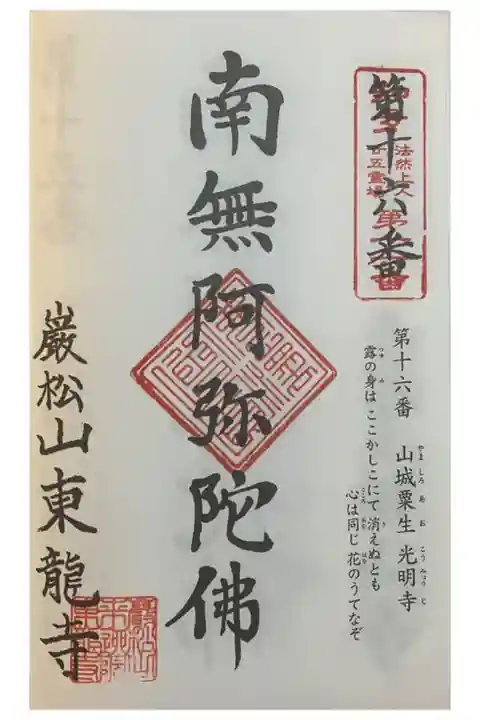 第十六番
法然上人
廿五霊場
第十六番
山城粟生 光明寺
露の身は ここかしこにて 消えぬとも
心は同じ 花のうてなぞ
南無阿弥陀佛
巌松山東龍寺